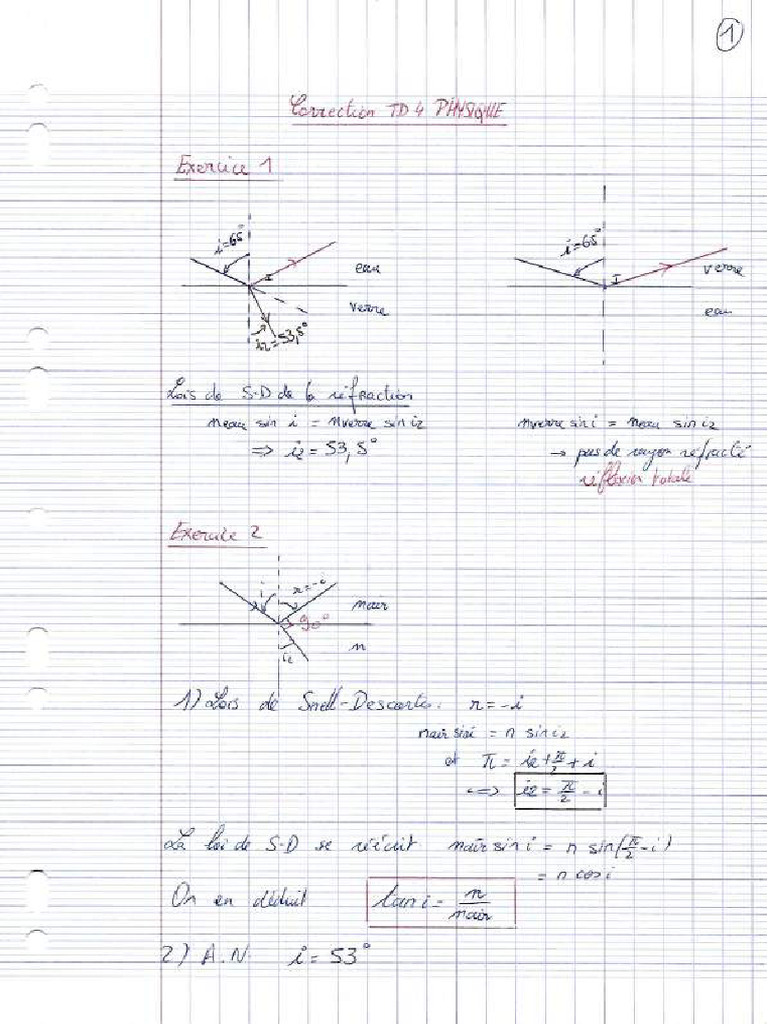 1
Correction TD 4 PHYSIQUE
Exercice 1
i=65°
I
eau
verre
i2=53,5°
i=65°
I
verre
eau
Lois de S-D de la réfraction
neau sin i = nverre sin i2
⇒ i2 = 53,5°
nverre sin i = neau sin i2
→ pas de rayon réfracté
réflexion totale
Exercice 2
i
r=-i
nair
90°
n
i2
1) Lois de Snell-Descartes: r=-i
nair sin i = n sin i2
et π = i2 + π/2 + i
⇔ i2 = π/2 - i
La loi de S-D se réécrit nair sin i = n sin(π/2 - i)
= n cos i
On en déduit tan i = n/nair
2) A.N. i = 53°